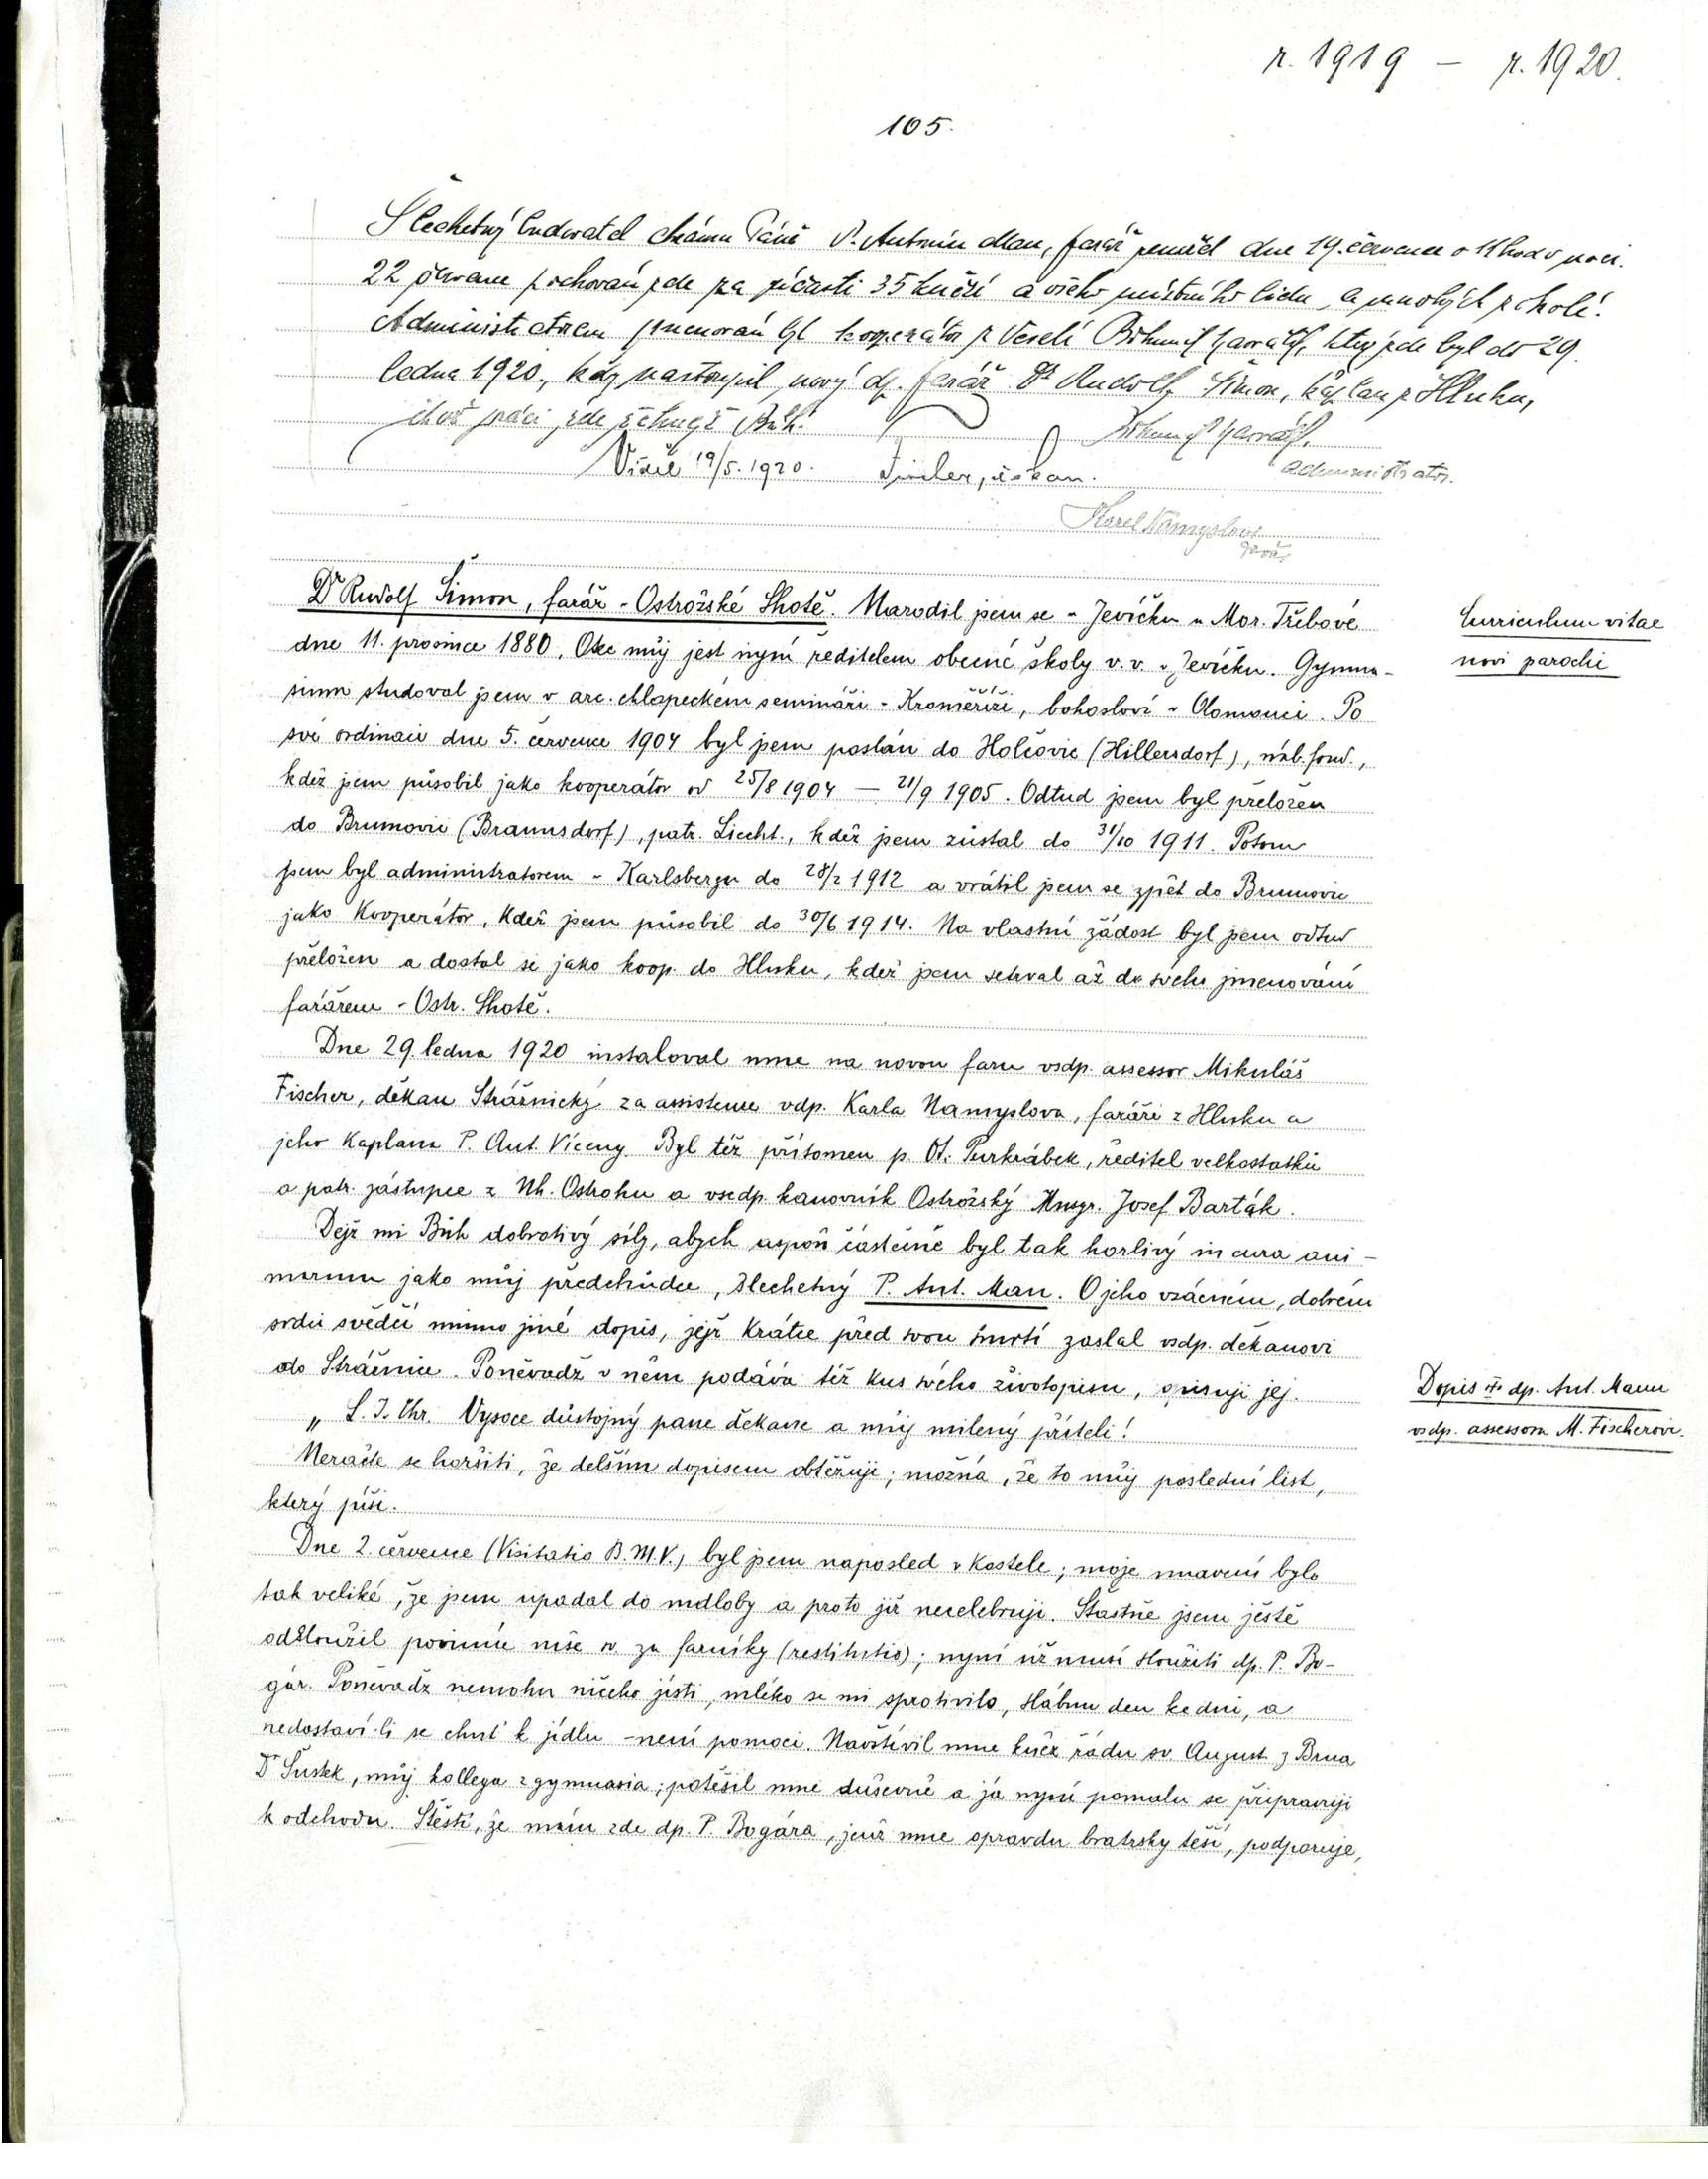 r. 1919 – r. 1920.
105.
Šlechetný budovatel chrámu Páně P. Antonín Man, farář zemřel dne 19. července o 11 hod v noci.
22 července pochován zde za účasti 35 kněží a všeho místního lidu, a mnohých z okolí.
Administrátorem jmenován byl kooperátor z Veselí Bohumil, který zde byl do 29.
ledna 1920, kdy nastoupil nový dp. farář Dr Rudolf Šimon, kaplan z Hluku,
jehož práci zde žehnejž Bůh!
administrator.
Viděl 19/5. 1920. Fischer, děkan.
Karel Namyslov
farář
Dr Rudolf Šimon, farář v Ostrožské Lhotě. Narodil jsem se v Jevíčku u Mor. Třebové
dne 11. prosince 1880. Otec můj jest nyní ředitelem obecné školy v. v. v Jevíčku. Gymna-
sium studoval jsem v arc. chlapeckém semináři v Kroměříži, bohosloví v Olomouci. Po
své ordinaci dne 5. července 1904 byl jsem poslán do Holčovic (Hillersdorf), náb. fond.,
kdež jsem působil jako kooperátor od 25/8 1904 — 21/9 1905. Odtud jsem byl přeložen
do Brumovic (Braunsdorf), patr. Liecht., kdež jsem zůstal do 31/10 1911. Potom
jsem byl administratorem v Karlsbergu do 28/2 1912 a vrátil jsem se zpět do Brumovic
jako kooperátor, kdež jsem působil do 30/6 1914. Na vlastní žádost byl jsem odtud
přeložen a dostal se jako koop. do Hluku, kdež jsem setrval až do svého jmenování
farářem v Ostr. Lhotě.
Curriculum vitae
novi parochi
Dne 29. ledna 1920 instaloval mne na novou faru vsdp. assessor Mikuláš
Fischer, děkan Strážnický za assistence vdp. Karla Namyslova, faráře z Hluku a
jeho kaplana P. Ant. Víceny. Byl též přítomen p. Ot. Purkrábek, ředitel velkostatků
a patr. zástupce z Uh. Ostrohu a vsdp. kanovník Ostrožský Msgr. Josef Barták.
Dejž mi Bůh dobrotivý síly, abych aspoň částečně byl tak horlivý in cura ani-
marum jako můj předchůdce, šlechetný P. Ant. Man. O jeho vzácném, dobrém
srdci svědčí mimo jiné dopis, jejž krátce před svou smrtí zaslal vsdp. děkanovi
do Strážnice. Poněvadž v něm podává též kus svého životopisu, opisuji jej.
Dopis dp. Ant. Mana
vsdp. assessoru M. Fischerovi.
„ L. J. Chr. Vysoce důstojný pane děkane a můj milený příteli!
Neračte se horšiti, že delším dopisem obtěžuji; možná, že to můj poslední list,
který píši.
Dne 2. července (Visitatio B. M. V.) byl jsem naposled v kostele; moje unavení bylo
tak veliké, že jsem upadal do mdloby a proto již necelebruji. Šťastně jsem ještě
odsloužil povinné mše sv. za farníky (restitutio); nyní už musí sloužiti dp. P. Bo-
gár. Poněvadž nemohu ničeho jísti, mléko se mi sprotivilo, slábnu den ke dni, a
nedostaví-li se chuť k jídlu – není pomoci. Navštívil mne kněz řádu sv. August. z Brna
Dr Šustek, můj kollega z gymnasia; potěšil mne duševně a já nyní pomalu se připravuji
k odchodu. Štěstí, že mám zde dp. P. Bogára, jenž mne opravdu bratrsky těší, podporuje,